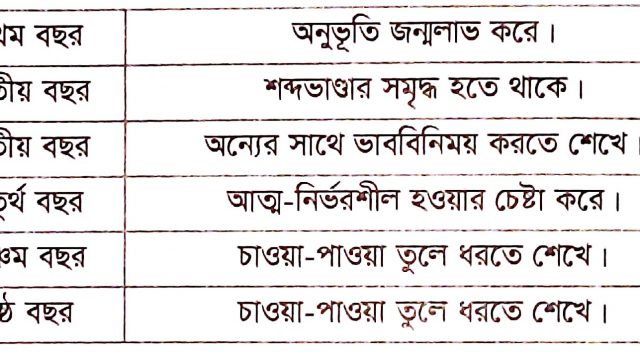 থম বছর অনুভূতি জন্মলাভ করে।
তীয় বছর শব্দভাণ্ডার সমৃদ্ধ হতে থাকে।
তীয় বছর অন্যের সাথে ভাববিনিময় করতে শেখে।
তুর্থ বছর আত্ম-নির্ভরশীল হওয়ার চেষ্টা করে।
ঞ্চম বছর চাওয়া-পাওয়া তুলে ধরতে শেখে।
ষ্ঠ বছর চাওয়া-পাওয়া তুলে ধরতে শেখে।